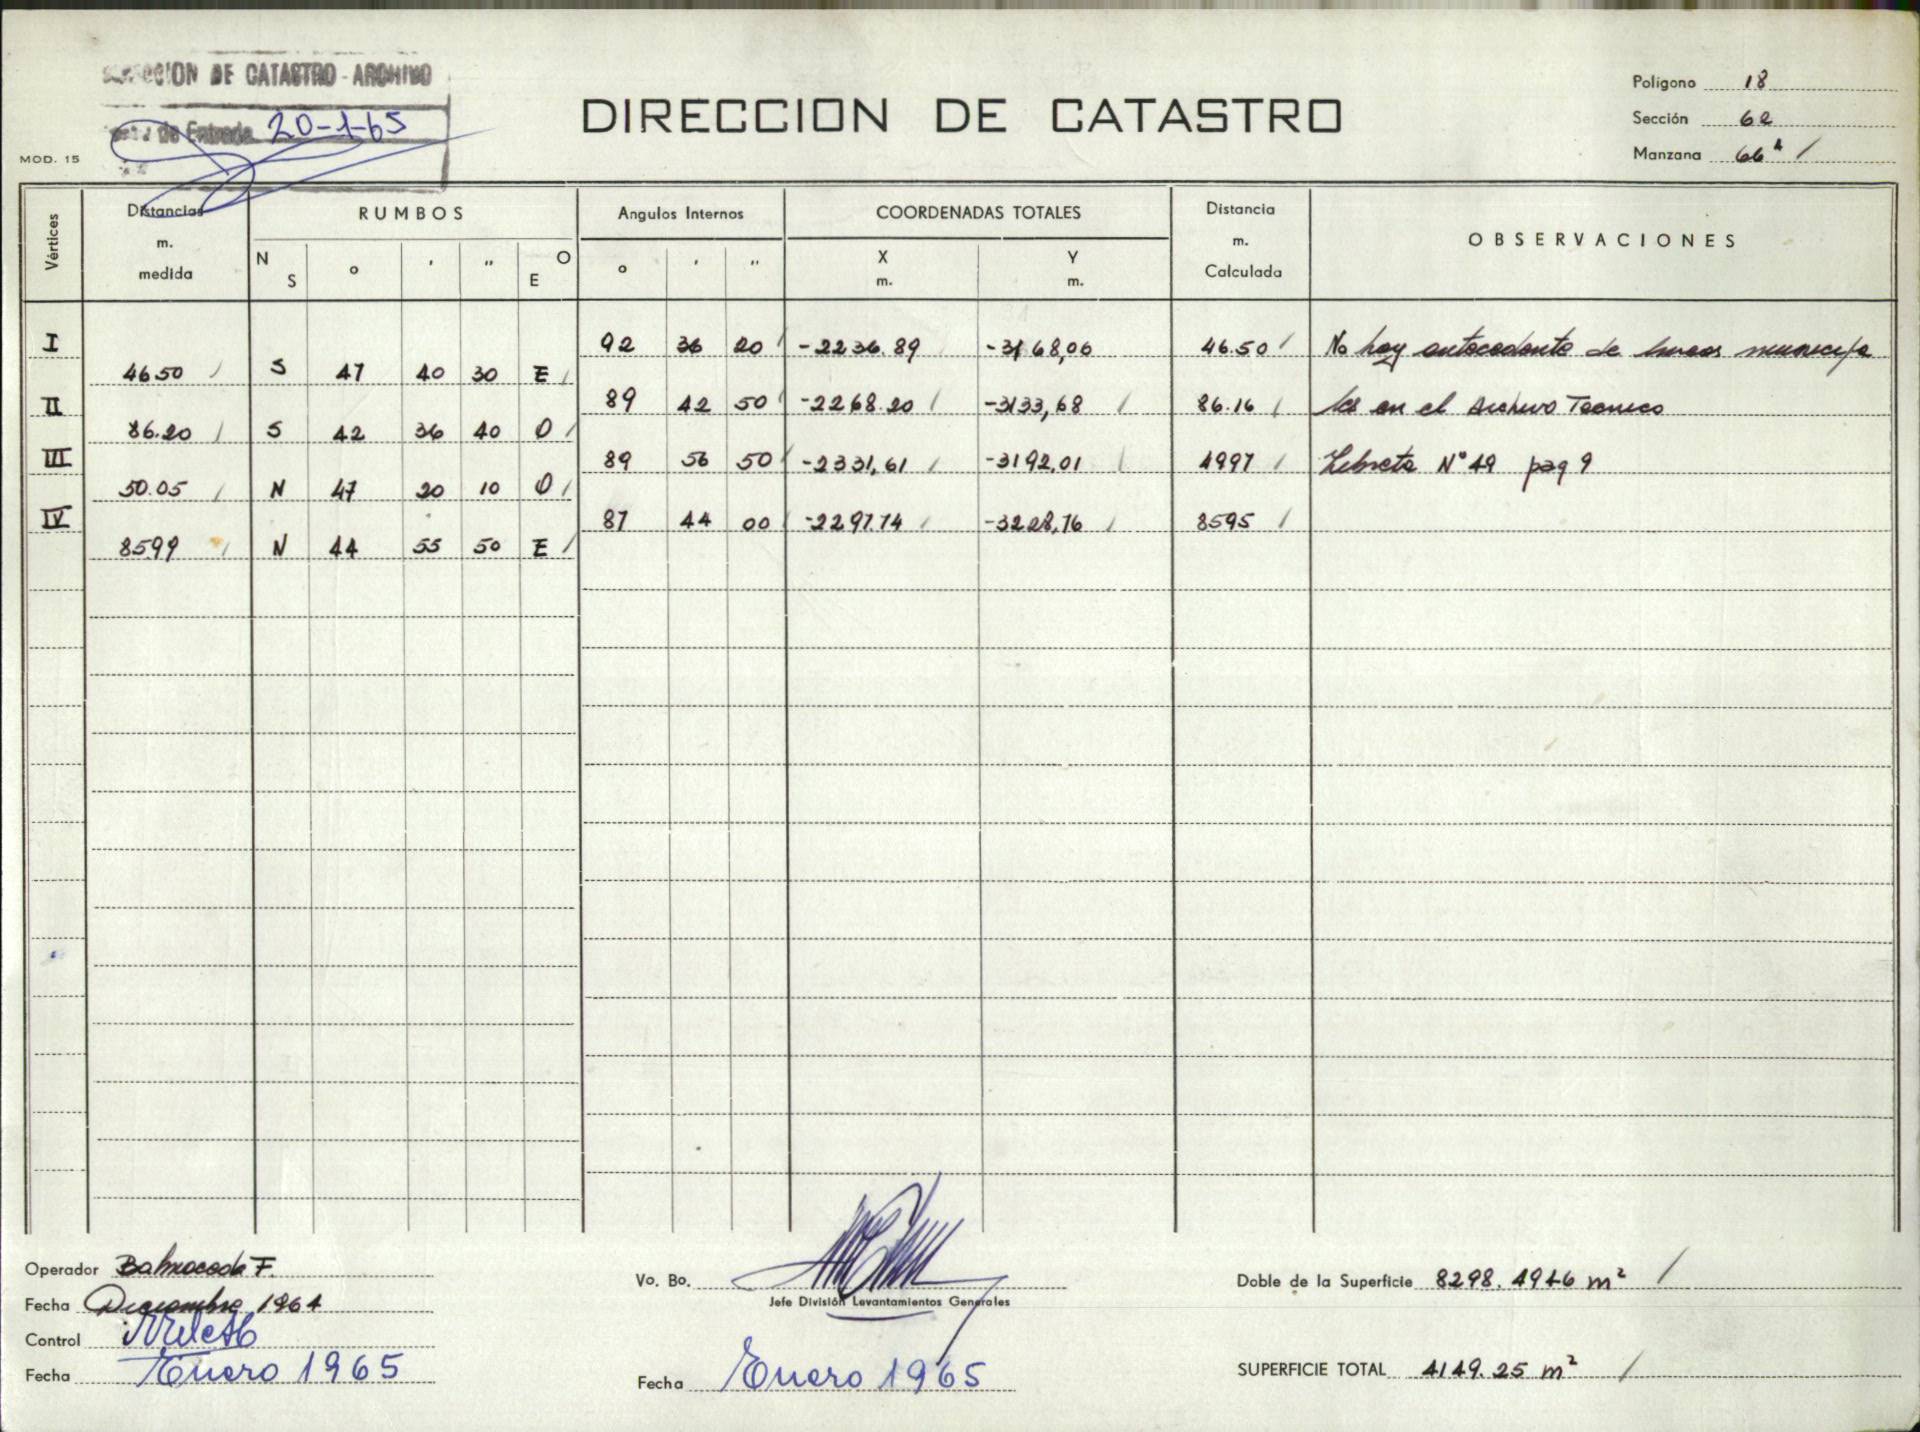 DIRECCION DE CATASTRO - ARCHIVO
de Entrada 20-1-65
MOD. 15
DIRECCION DE CATASTRO
Polígono 18
Sección 62
Manzana 66ª
Vértices
Distancias m. medida
RUMBOS
N S ° ' " O E
Angulos Internos
° ' "
COORDENADAS TOTALES
X m. Y m.
Distancia m. Calculada
OBSERVACIONES
I 92 36 20 -2236.89 -3168,06 46.50 No hay antecedente de lineas municipa
46.50 S 47 40 30 E
II 89 42 50 -2268.20 -3133,68 86.16 les en el Archivo Tecnico
86.20 S 42 36 40 O
III 89 56 50 -2331,61 -3192,01 4997 Libreta N° 49 pag 9
50.05 N 47 20 10 O
IV 87 44 00 -2297.74 -3228,76 8595
8599 N 44 55 50 E
Operador F.
Fecha Diciembre 1964
Control
Fecha Enero 1965
Vo. Bo.
Jefe División Levantamientos Generales
Fecha Enero 1965
Doble de la Superficie 8298.4946 m²
SUPERFICIE TOTAL 4149.25 m²